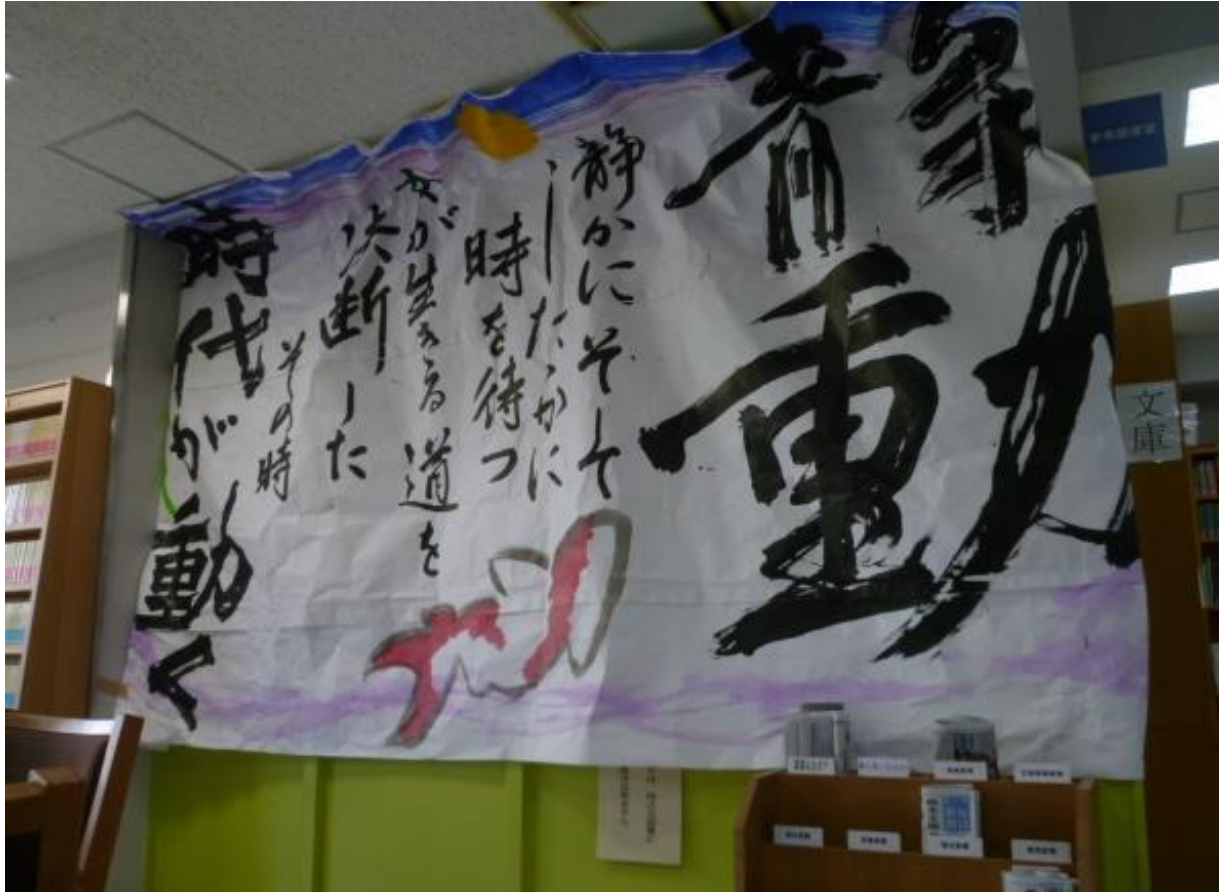 静動
静かにそして
したたかに
時を待つ
女が生きる道を
決断した
その時
時代が動く
文庫